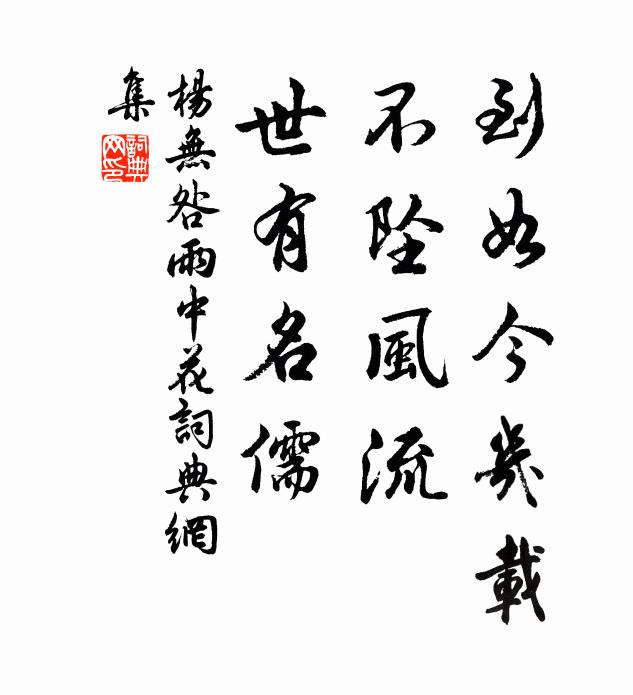 到如今幾載
不墜風流
世有名儒
楊無咎雨中花詞典網
集
詞典
网印